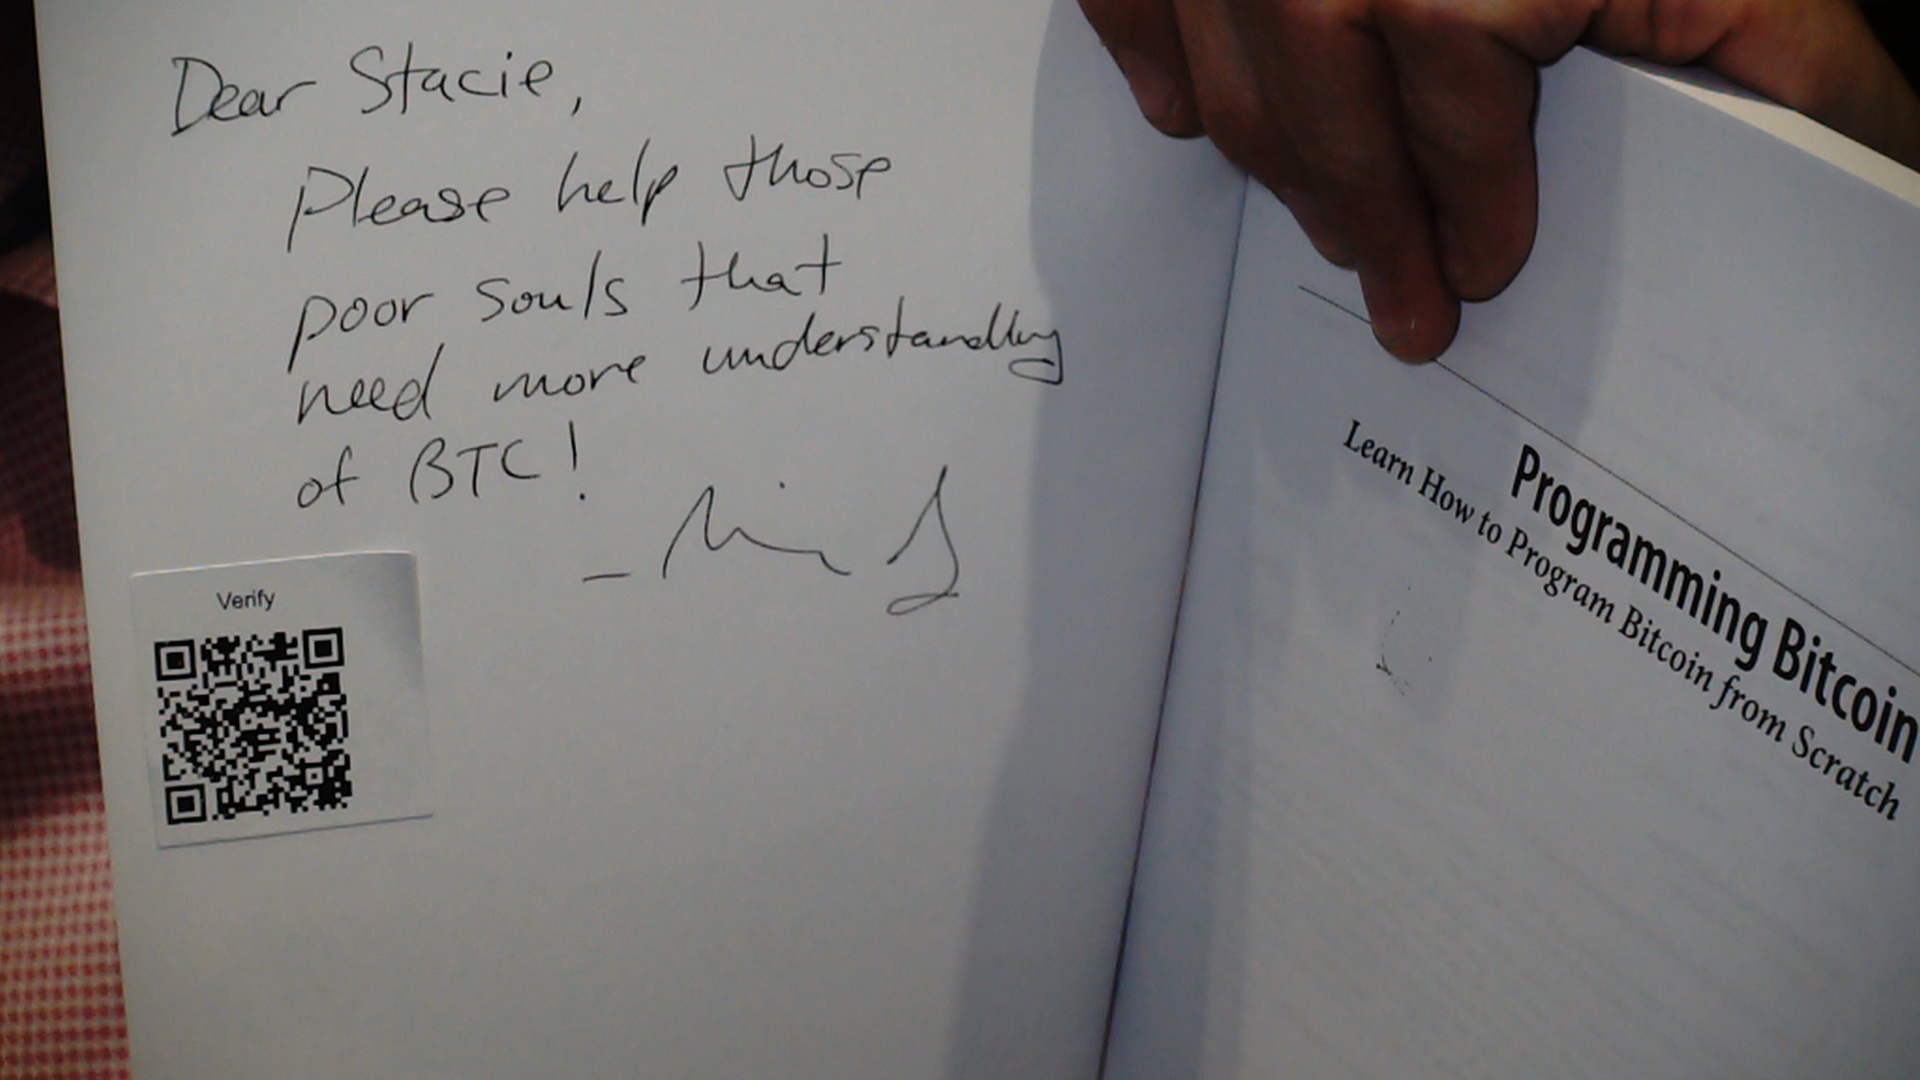 Dear Stacie,
Please help those
poor souls that
need more understanding
of BTC!
Verify
Programming Bitcoin
Learn How to Program Bitcoin from Scratch